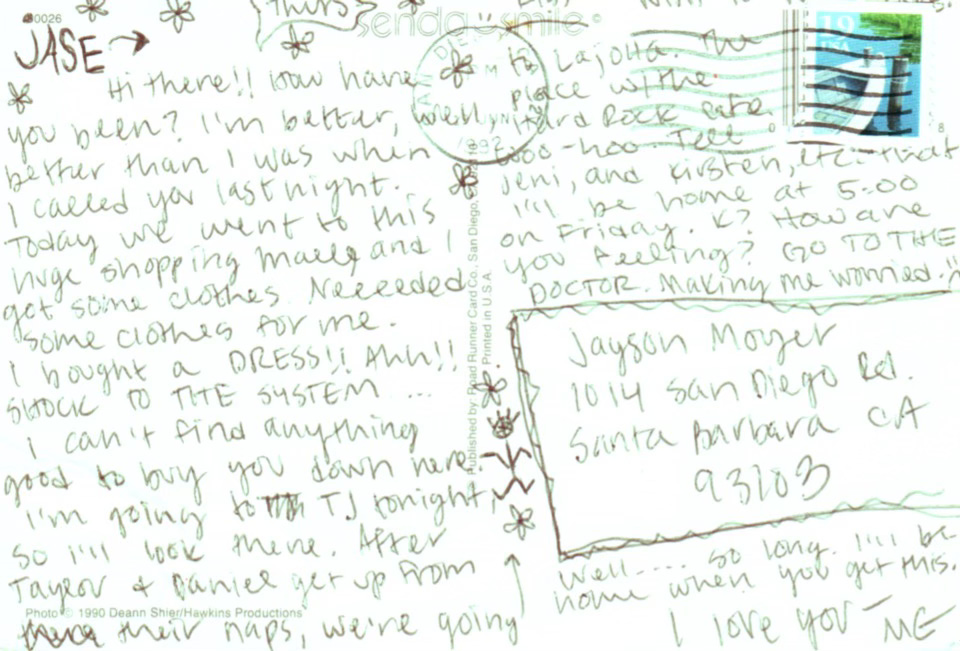 80026
Thurs
JASE →
Hi there!! How have
you been? I'm better, well,
better than I was when
I called you last night.
Today we went to this
huge shopping mall and I
got some clothes. Neeeeded
some clothes for me.
I bought a DRESS!! Ahh!!
SHOCK TO THE SYSTEM ....
I can't find anything
good to buy you down here.
I'm going to TJ tonight,
so I'll look there. After
Taylor & Daniel get up from
Photo © 1990 Deann Shier/Hawkins Productions
their naps, we're going
senda smile ©
to Lajolla. The
place w/the
Hard Rock cafe.
Woo-hoo. Tell
Jeni, and Kirsten, etc. that
I'll be home at 5:00
on Friday. K? How are
you feeling? GO TO THE
DOCTOR. Making me worried.
Published by: Road Runner Card Co., San Diego,
Printed in U.S.A.
1992
19
USA
Jayson Moyer
1014 San Diego Rd.
Santa Barbara CA
93103
Well..... so long. I'll be
home when you get this.
I love you – ME